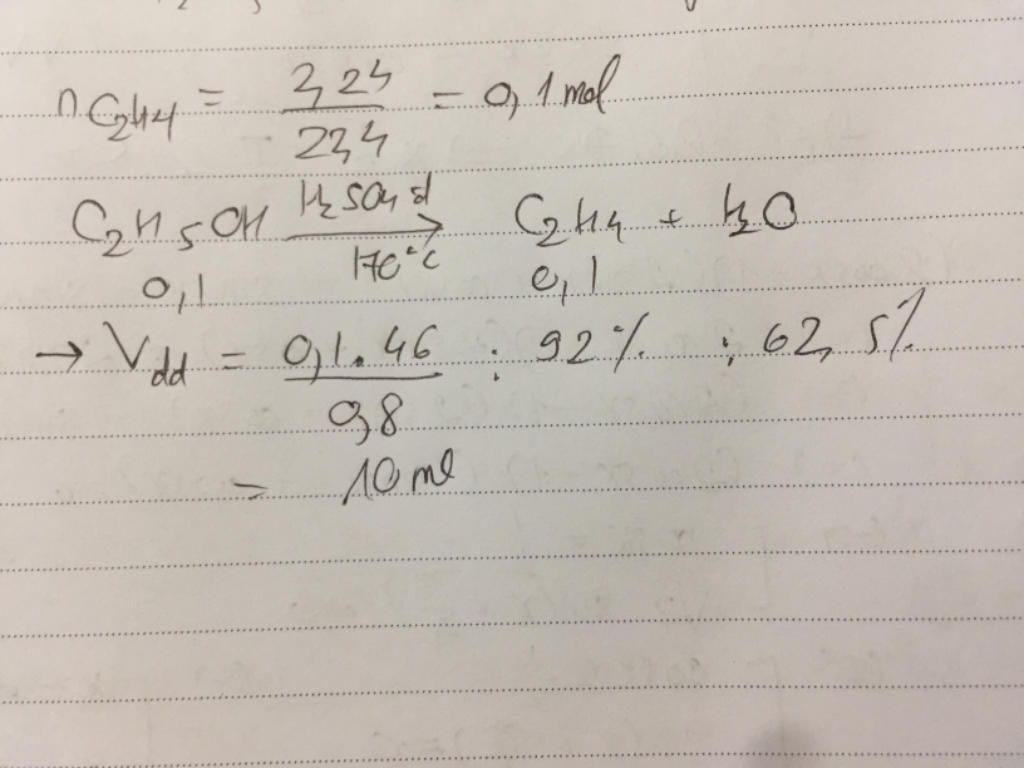 nC2H4 = 2,24 / 22,4 = 0,1 mol
C2H5OH H2SO4 đ → 170°C C2H4 + H2O
0,1 0,1
→ Vdd = 0,1.46 / 0,8 : 92% : 62,5%
= 10 ml